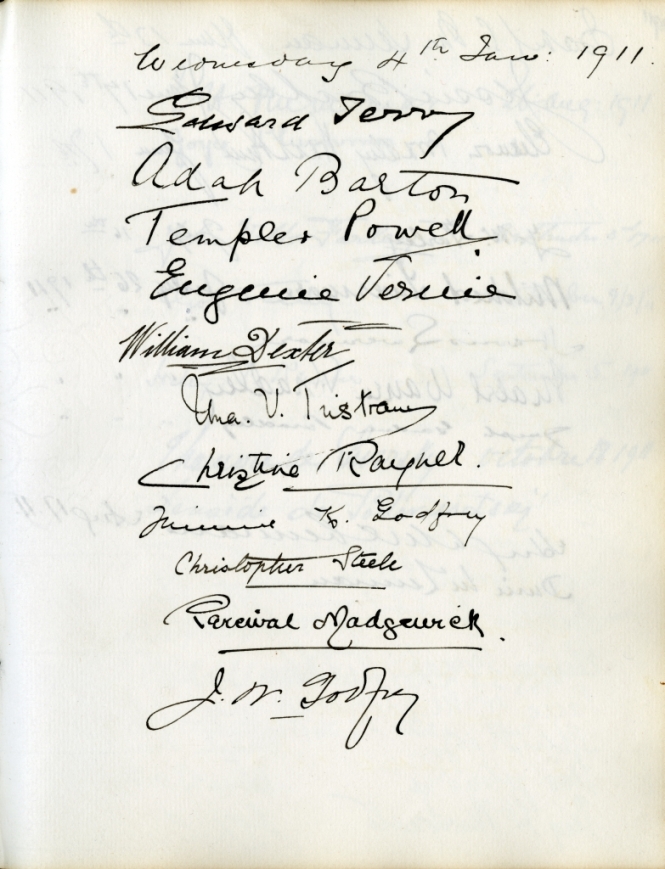 Wednesday 4th Jan: 1911.
Edward Terry
Adah Barton
Templer Powell
Eugenie Vernie
William Dexter
Una. V. Tristram
Christine Rayner.
K. Godfrey
Christopher Steele
Percival Madgewick.
J. W. Godfrey